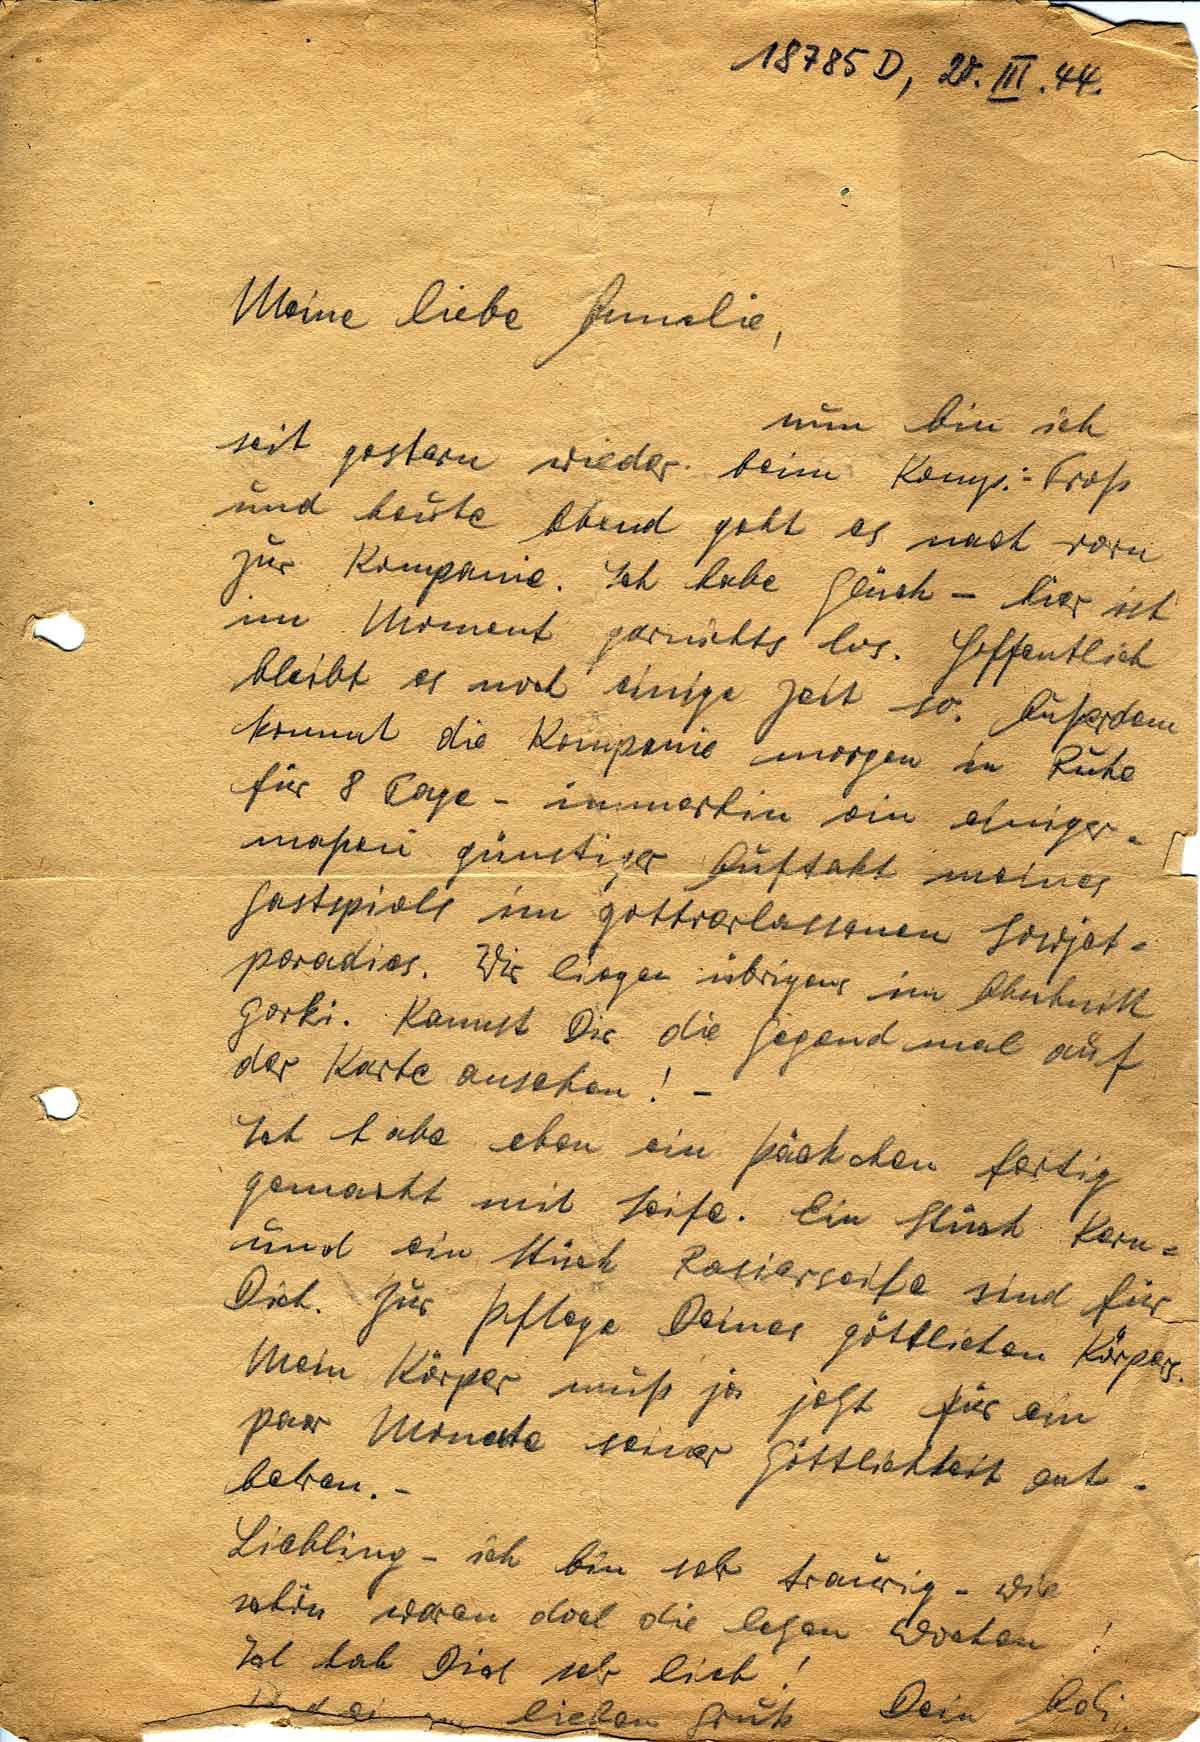 18785 D, 20. III. 44.
Meine liebe
nun bin ich
seit gestern wieder beim Komp.-Troß
und heute Abend geht es nach vorn
zur Kompanie. Ich habe Glück – hier ist
im Moment garnichts los. Hoffentlich
bleibt es noch einige Zeit so. Außerdem
kommt die Kompanie morgen in Ruhe
für 8 Tage – immerhin ein einiger-
maßen günstiger Auftakt meines
Gastspiels im gottverlassenen Sowjet-
paradies. Wir liegen übrigens im Abschnitt
Gorki. Kannst Dir die Gegend mal auf
der Karte ansehen! –
Ich habe eben ein Päckchen fertig
gemacht mit Seife. Ein Stück Kern-
und ein Stück Rasierseife sind für
Dich. Zur Pflege Deines göttlichen Körpers.
Mein Körper muß ja jetzt für ein
paar Monate seiner Göttlichkeit ent-
behren. –
Liebling – ich bin sehr traurig – wie
schön waren doch die letzten Wochen!
Ich hab Dich sehr lieb!
lieben Gruß Dein